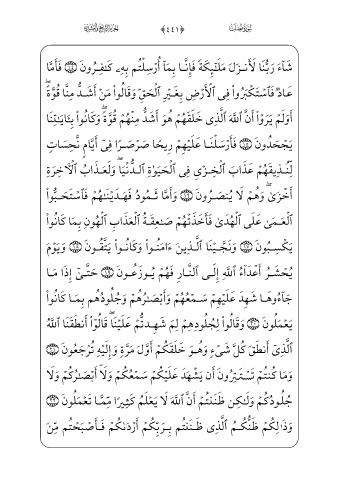 سورة فصلت ﴿٤٤١﴾ الجزء الرابع والعشرون
شَآءَ رَبُّنَا لَأَنزَلَ مَلَـٰٓئِكَةً فَإِنَّا بِمَآ أُرْسِلْتُم بِهِۦ كَـٰفِرُونَ ۝ فَأَمَّا
عَادٌ فَٱسْتَكْبَرُوا۟ فِى ٱلْأَرْضِ بِغَيْرِ ٱلْحَقِّ وَقَالُوا۟ مَنْ أَشَدُّ مِنَّا قُوَّةً ۖ
أَوَلَمْ يَرَوْا۟ أَنَّ ٱللَّهَ ٱلَّذِى خَلَقَهُمْ هُوَ أَشَدُّ مِنْهُمْ قُوَّةً ۖ وَكَانُوا۟ بِـَٔايَـٰتِنَا
يَجْحَدُونَ ۝ فَأَرْسَلْنَا عَلَيْهِمْ رِيحًا صَرْصَرًا فِىٓ أَيَّامٍ نَّحِسَاتٍ
لِّنُذِيقَهُمْ عَذَابَ ٱلْخِزْىِ فِى ٱلْحَيَوٰةِ ٱلدُّنْيَا ۖ وَلَعَذَابُ ٱلْـَٔاخِرَةِ
أَخْزَىٰ ۖ وَهُمْ لَا يُنصَرُونَ ۝ وَأَمَّا ثَمُودُ فَهَدَيْنَـٰهُمْ فَٱسْتَحَبُّوا۟
ٱلْعَمَىٰ عَلَى ٱلْهُدَىٰ فَأَخَذَتْهُمْ صَـٰعِقَةُ ٱلْعَذَابِ ٱلْهُونِ بِمَا كَانُوا۟
يَكْسِبُونَ ۝ وَنَجَّيْنَا ٱلَّذِينَ ءَامَنُوا۟ وَكَانُوا۟ يَتَّقُونَ ۝ وَيَوْمَ
يُحْشَرُ أَعْدَآءُ ٱللَّهِ إِلَى ٱلنَّارِ فَهُمْ يُوزَعُونَ ۝ حَتَّىٰٓ إِذَا مَا
جَآءُوهَا شَهِدَ عَلَيْهِمْ سَمْعُهُمْ وَأَبْصَـٰرُهُمْ وَجُلُودُهُم بِمَا كَانُوا۟
يَعْمَلُونَ ۝ وَقَالُوا۟ لِجُلُودِهِمْ لِمَ شَهِدتُّمْ عَلَيْنَا ۖ قَالُوٓا۟ أَنطَقَنَا ٱللَّهُ
ٱلَّذِىٓ أَنطَقَ كُلَّ شَىْءٍ وَهُوَ خَلَقَكُمْ أَوَّلَ مَرَّةٍ وَإِلَيْهِ تُرْجَعُونَ ۝
وَمَا كُنتُمْ تَسْتَتِرُونَ أَن يَشْهَدَ عَلَيْكُمْ سَمْعُكُمْ وَلَآ أَبْصَـٰرُكُمْ وَلَا
جُلُودُكُمْ وَلَـٰكِن ظَنَنتُمْ أَنَّ ٱللَّهَ لَا يَعْلَمُ كَثِيرًا مِّمَّا تَعْمَلُونَ ۝
وَذَٰلِكُمْ ظَنُّكُمُ ٱلَّذِى ظَنَنتُم بِرَبِّكُمْ أَرْدَىٰكُمْ فَأَصْبَحْتُم مِّنَ